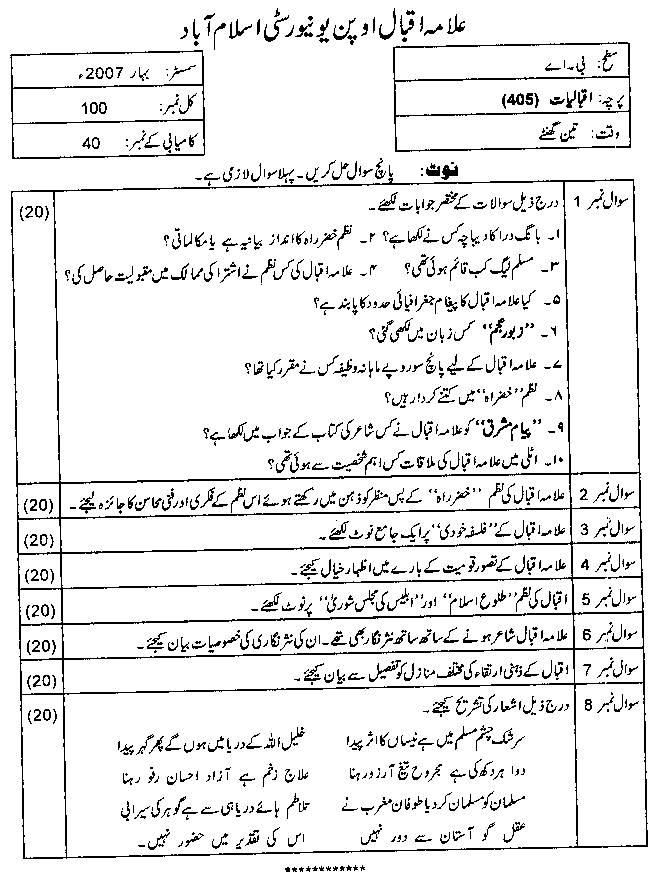 علامہ اقبال اوپن یونیورسٹی اسلام آباد
سطح: بی۔اے
سمسٹر: بہار 2007ء
پرچہ: اقبالیات (405)
کل نمبر: 100
وقت: تین گھنٹے
کامیابی کے نمبر: 40
نوٹ: پانچ سوال حل کریں۔ پہلا سوال لازمی ہے۔
سوال نمبر 1 درج ذیل سوالات کے مختصر جوابات لکھئے۔ (20)
۱۔ بانگ درا کا دیباچہ کس نے لکھا ہے؟ ۲۔ نظم خضر راہ کا انداز بیانیہ ہے یا مکالماتی؟
۳۔ مسلم لیگ کب قائم ہوئی تھی؟ ۴۔ علامہ اقبال کی کس نظم نے اشتراکی ممالک میں مقبولیت حاصل کی؟
۵۔ کیا علامہ اقبال کا پیغام جغرافیائی حدود کا پابند ہے؟
۶۔ "زبور عجم" کس زبان میں لکھی گئی؟
۷۔ علامہ اقبال کے لیے پانچ سو روپے ماہانہ وظیفہ کس نے مقرر کیا تھا؟
۸۔ نظم "خضر راہ" میں کتنے کردار ہیں؟
۹۔ "پیام مشرق" کو علامہ اقبال نے کس شاعر کی کتاب کے جواب میں لکھا ہے؟
۱۰۔ اٹلی میں علامہ اقبال کی ملاقات کس اہم شخصیت سے ہوئی تھی؟
سوال نمبر 2 علامہ اقبال کی نظم "خضر راہ" کے پس منظر کو ذہن میں رکھتے ہوئے اس نظم کے فکری اور فنی محاسن کا جائزہ لیجئے۔ (20)
سوال نمبر 3 علامہ اقبال کے "فلسفہ خودی" پر ایک جامع نوٹ لکھئے۔ (20)
سوال نمبر 4 علامہ اقبال کے تصور قومیت کے بارے میں اظہار خیال کیجئے۔ (20)
سوال نمبر 5 اقبال کی نظم "طلوع اسلام" اور "ابلیس کی مجلس شوریٰ" پر نوٹ لکھئے۔ (20)
سوال نمبر 6 علامہ اقبال شاعر ہونے کے ساتھ ساتھ نثر نگار بھی تھے۔ ان کی نثر نگاری کی خصوصیات بیان کیجئے۔ (20)
سوال نمبر 7 اقبال کے ذہنی ارتقاء کی مختلف منازل کو تفصیل سے بیان کیجئے۔ (20)
سوال نمبر 8 درج ذیل اشعار کی تشریح کیجئے۔ (20)
سرشک چشم مسلم میں ہے نیساں کا اثر پیدا خلیل اللہ کے دریا میں ہوں گے پھر گہر پیدا
دوا ہر دکھ کی ہے مجروح تیغ آرزو رہنا علاج زخم ہے آزاد احسان رفو رہنا
مسلمان کو مسلمان کر دیا طوفان مغرب نے تلاطم ہائے دریا ہی سے ہے گوہر کی سیرابی
عقل گو آستان سے دور نہیں اس کی تقدیر میں حضور نہیں۔
************